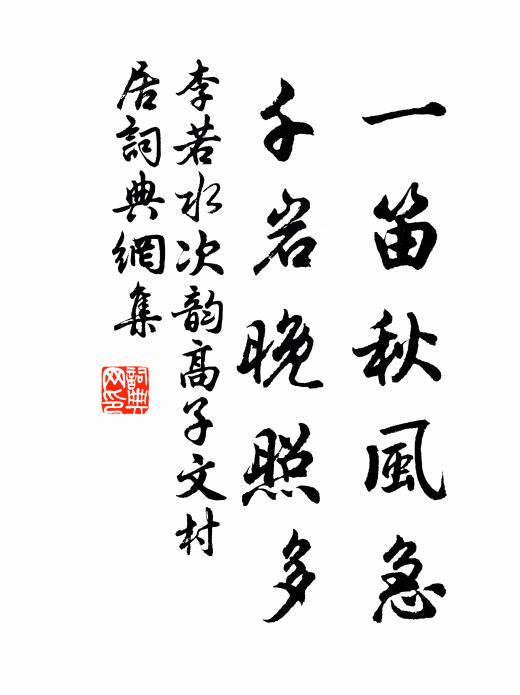 一笛秋風急
千岩晚照多
李若水次韵高子文村
居詞典網集
詞典
网印